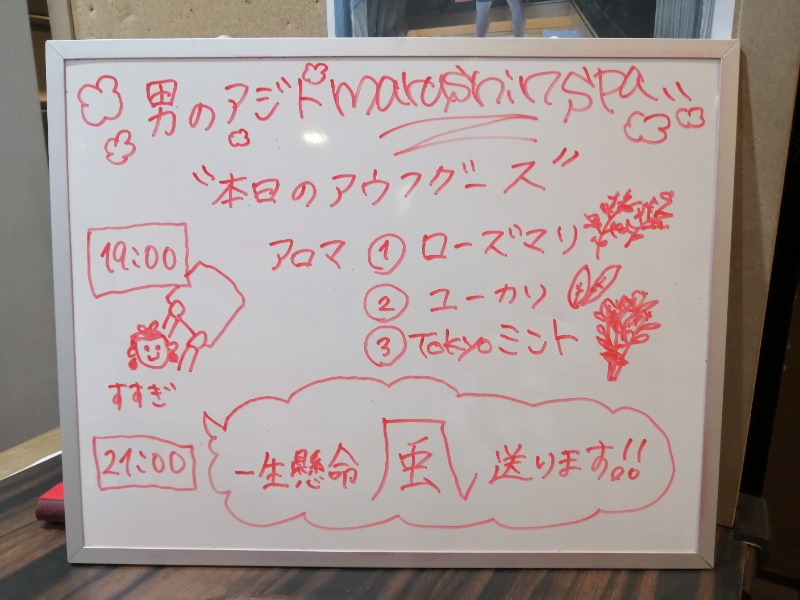 男のアジトmarushinspa
"本日のアウフグース"
19:00
アロマ ① ローズマリ
② ユーカリ
③ Tokyoミント
すすぎ
21:00
一生懸命 風 送ります!!